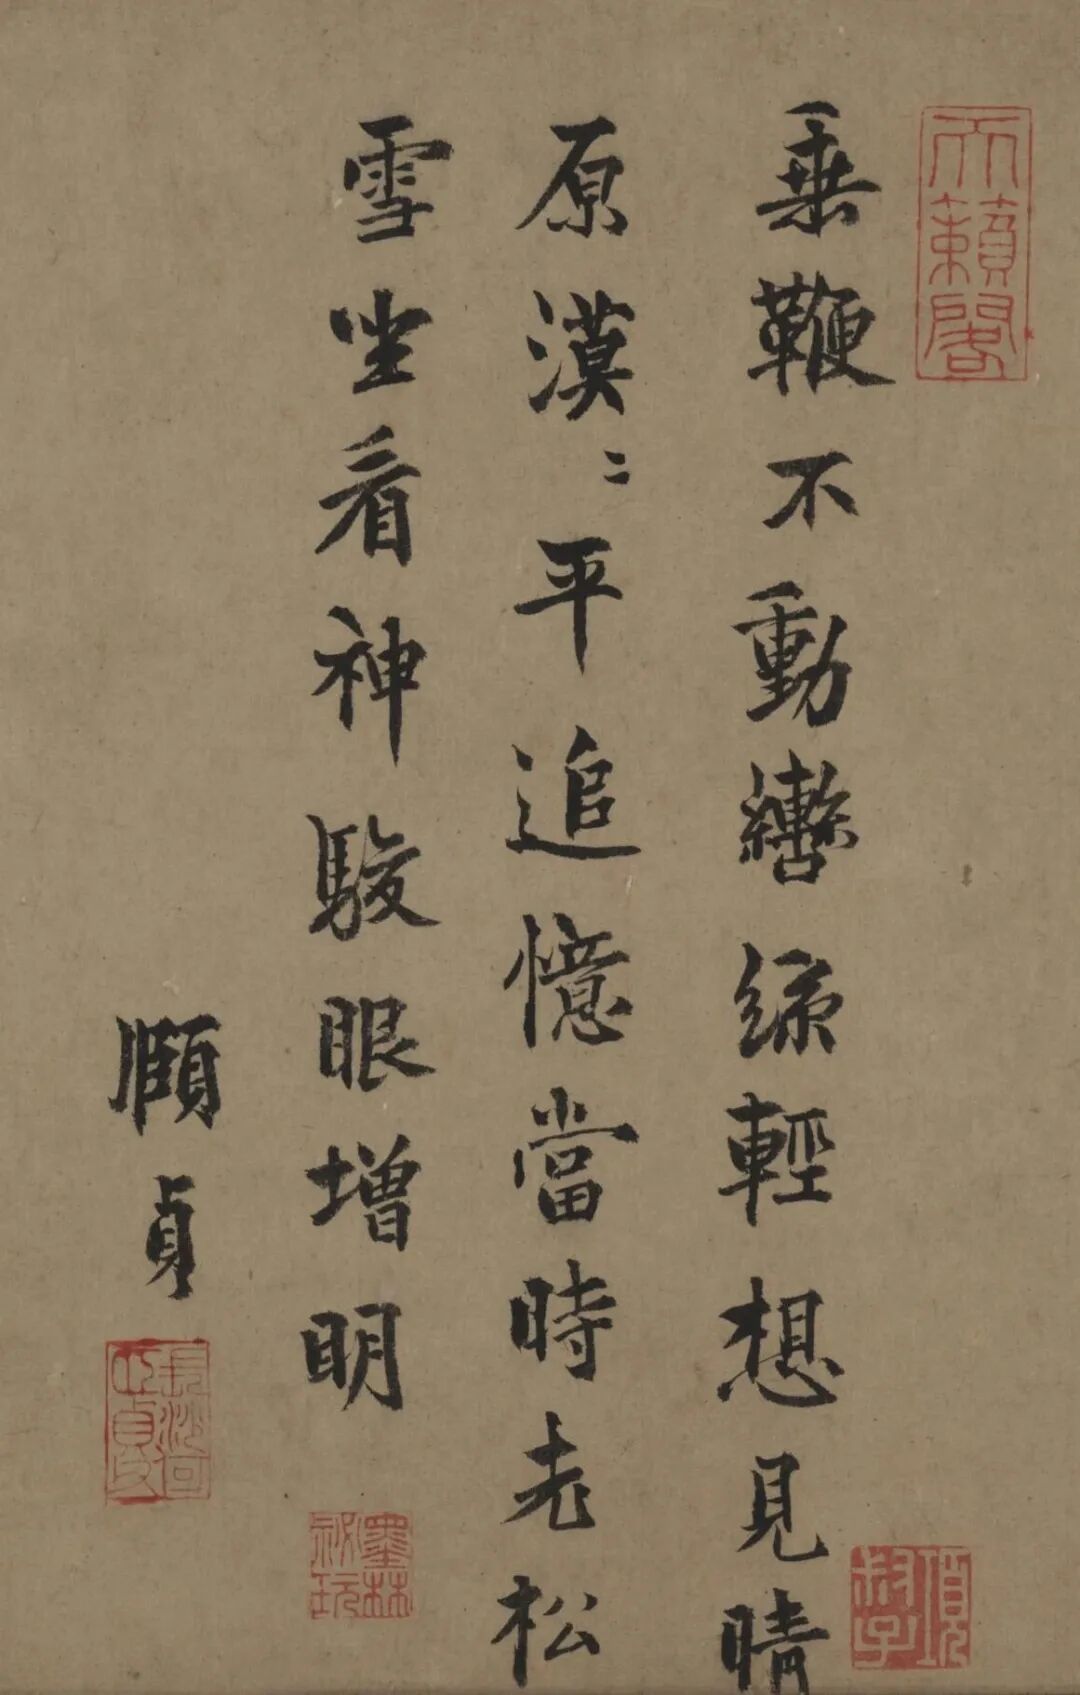 天籟閣
垂鞭不動轡絲輕想見晴
項叔子
原漠〻平追憶當時老松
雪坐看神駿眼增明
墨林祕玩
頤貞